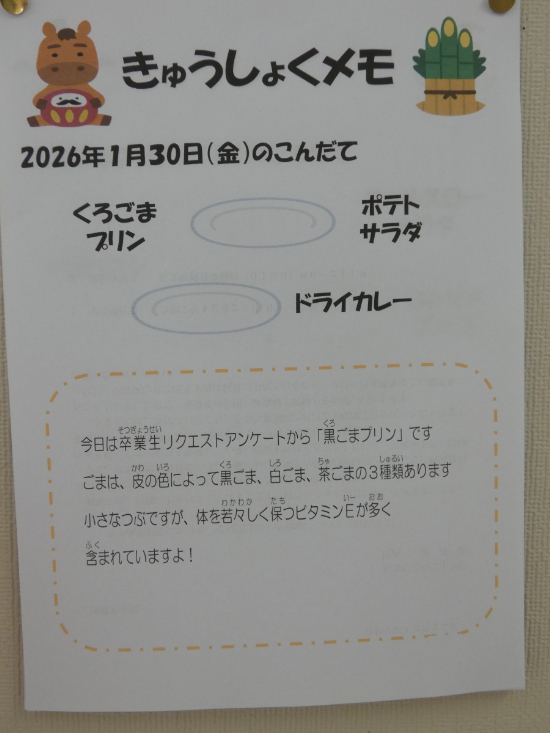 きゅうしょくメモ
2026年1月30日(金)のこんだて
くろごま
プリン
ポテト
サラダ
ドライカレー
今日は卒業生リクエストアンケートから「黒ごまプリン」です
ごまは、皮の色によって黒ごま、白ごま、茶ごまの3種類あります
小さなつぶですが、体を若々しく保つビタミンEが多く
含まれていますよ!